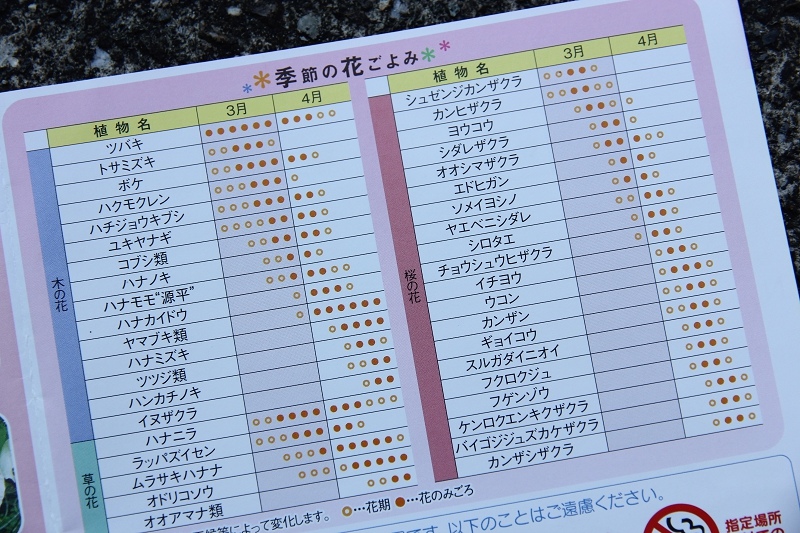 季節の花ごよみ
植物名 3月 4月
木の花
ツバキ
トサミズキ
ボケ
ハクモクレン
ハチジョウキブシ
ユキヤナギ
コブシ類
ハナノキ
ハナモモ“源平”
ハナカイドウ
ヤマブキ類
ハナミズキ
ツツジ類
ハンカチノキ
イヌザクラ
草の花
ハナニラ
ラッパズイセン
ムラサキハナナ
オドリコソウ
オオアマナ類
植物名 3月 4月
桜の花
シュゼンジカンザクラ
カンヒザクラ
ヨウコウ
シダレザクラ
オオシマザクラ
エドヒガン
ソメイヨシノ
ヤエベニシダレ
シロタエ
チョウシュウヒザクラ
イチヨウ
ウコン
カンザン
ギョイコウ
スルガダイニオイ
フクロクジュ
フゲンゾウ
ケンロクエンキクザクラ
バイゴジジュズカケザクラ
カンザシザクラ
によって変化します。 ○…花期 ●…花のみごろ
です。以下のことはご遠慮ください。
指定場所